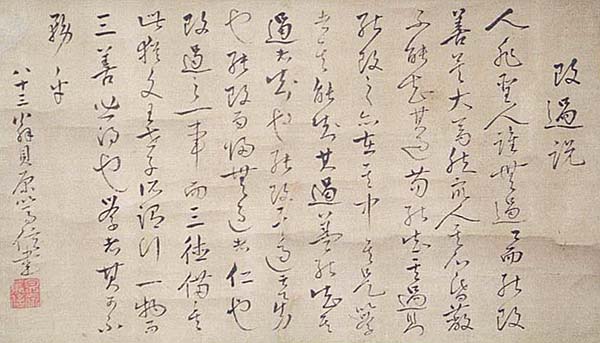 改過説
人非聖人誰無過〻而能改
善莫大焉然人之心昏蔽
不能知其過苟能知其過則
能改之亦在其中矣凡學
者能知其過蓋能知其
過者知也能改不吝者勇
也能改而歸無過者仁也
改過之一事而三徳備矣
此猶文王世子所謂行一物而
三善皆得也學者其可不
務乎
八十三翁貝原篤信書